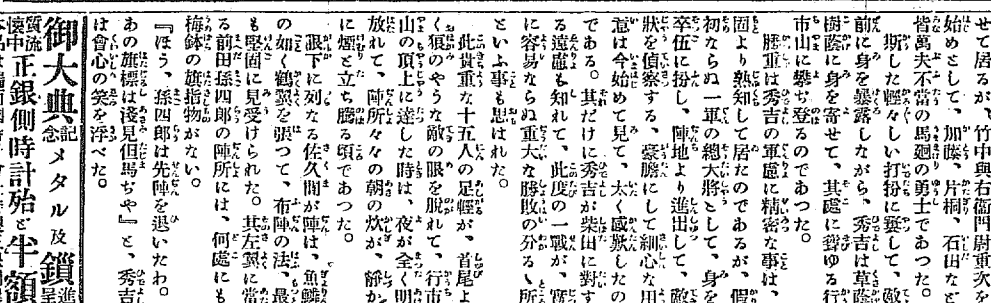 せて居るが、竹中與右衞門尉重次を
始めとして、加藤、片桐、石田など
皆萬夫不當の馬廻の勇士であつた。
斯した輕々しい打扮に窶して、敵
前に身を暴露しながら、秀吉は草蔭
樹蔭に身を寄せて、其處に聳ゆる行
市山に攀ぢ登るのであつた。
勝重は秀吉の軍慮に精密な事は、
固より熟知して居たのであるが、假
初ならぬ一軍の總大將として、身を
卒伍に扮し、陣地より進出して、敵
狀を偵察する、豪膽にして細心な用
意は今始めて見て、太く感歎したの
である。其だけに秀吉が柴田に對す
る遠慮も知れて、此度の一戰が、實
に容易ならぬ重大な勝敗の分るゝ所
といふ事も思はれた。
此貴重な十五人の足輕が、首尾よ
く狼のやうな敵の眼を脫れて、行市
山の頂上に達した時は、夜が全く明
放れて、陣所々々の朝の炊が、靜か
に煙と立ち騰る頃であつた。
眼下に列なる佐久間が陣は、魚鱗
の如く鶴翼を張つて、布陣の法、最
も堅固に見受けられた。其左翼に當
る前田孫四郎の陣所には、何處にも
梅鉢の旗指物がない。
『ほう、孫四郎は先陣を退いたわ。
あの旗標は淺見但馬ぢや』と、秀吉
は會心の笑を浮べた。
御大典記念メタル及鎖進呈
質流懷中正銀側時計殆ど半額